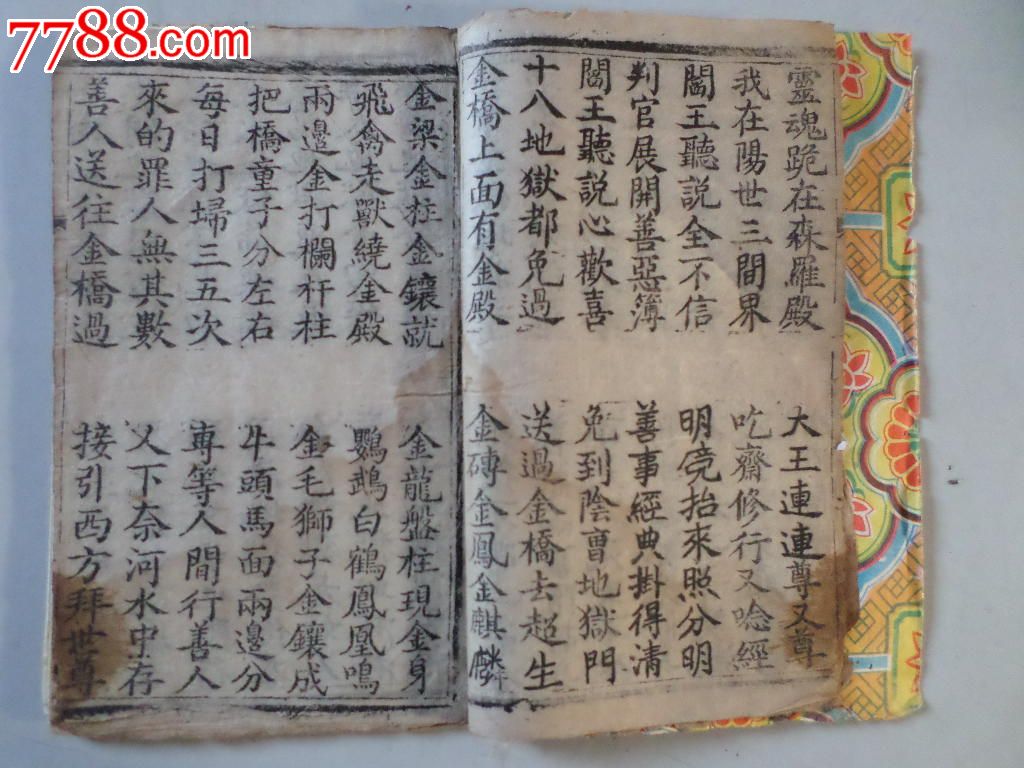 7788.com
靈魂跪在森羅殿 大王連連尊又尊
我在陽世三間界 吃齋修行又唸經
閻王聽説全不信 明竟抬來照分明
判官展開善惡簿 善事經典掛得清
閻王聽説心歡喜 免到陰曹地獄門
十八地獄都免過 送過金橋去超生
金橋上面有金殿 金磚金鳳金麒麟
金梁金柱金鑲就 金龍盤柱現金身
飛禽走獸繞金殿 鸚鵡白鶴鳳凰鳴
兩邊金打欄杆柱 金毛獅子金鑲成
把橋童子分左右 牛頭馬面兩邊分
每日打埽三五次 専等人間行善人
來的罪人無其數 又下奈河水中存
善人送往金橋過 接引西方拜世尊